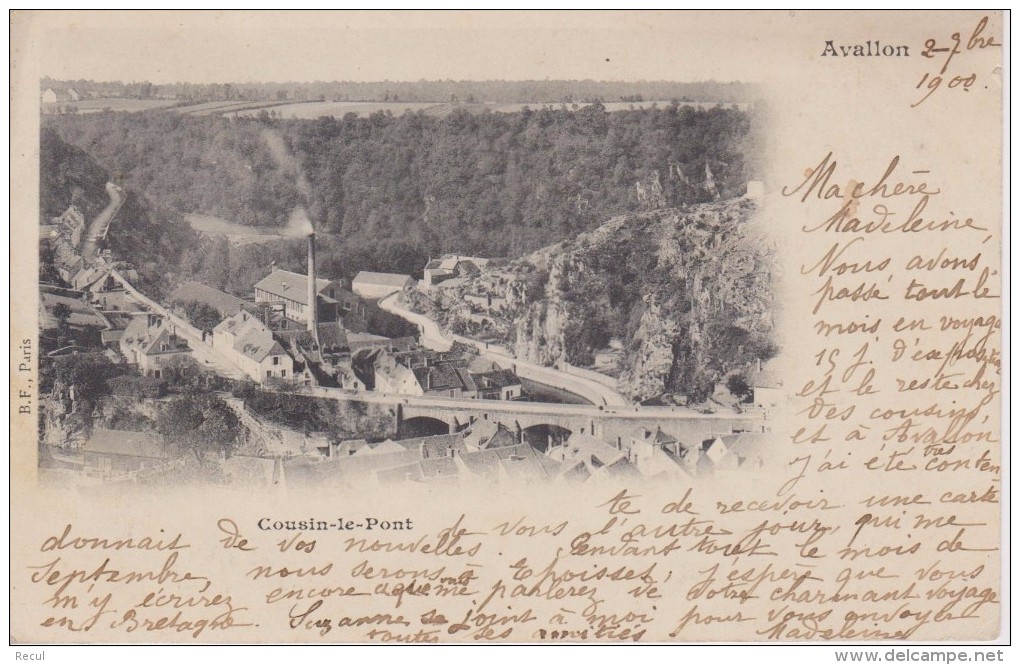 Avallon 2-7bre
1900
Ma chère
Madeleine,
Nous avons
passé tout le
mois en voyage
15 j. d'exposition
et le reste chez
des cousins,
et à Avallon
j'ai été très conten
te de recevoir une carte
Cousin-le-Pont
de vous l'autre jour, qui me
donnait de vos nouvelles. Pendant tout le mois de
Septembre, nous serons à Epoisses, j'espère que vous
m'y écrirez encore et me parlerez de votre charmant voyage
en Bretagne. Suzanne se joint à moi pour vous envoyer
toutes ses amitiés Madeleine
B.F., Paris
© Recul
www.delcampe.net